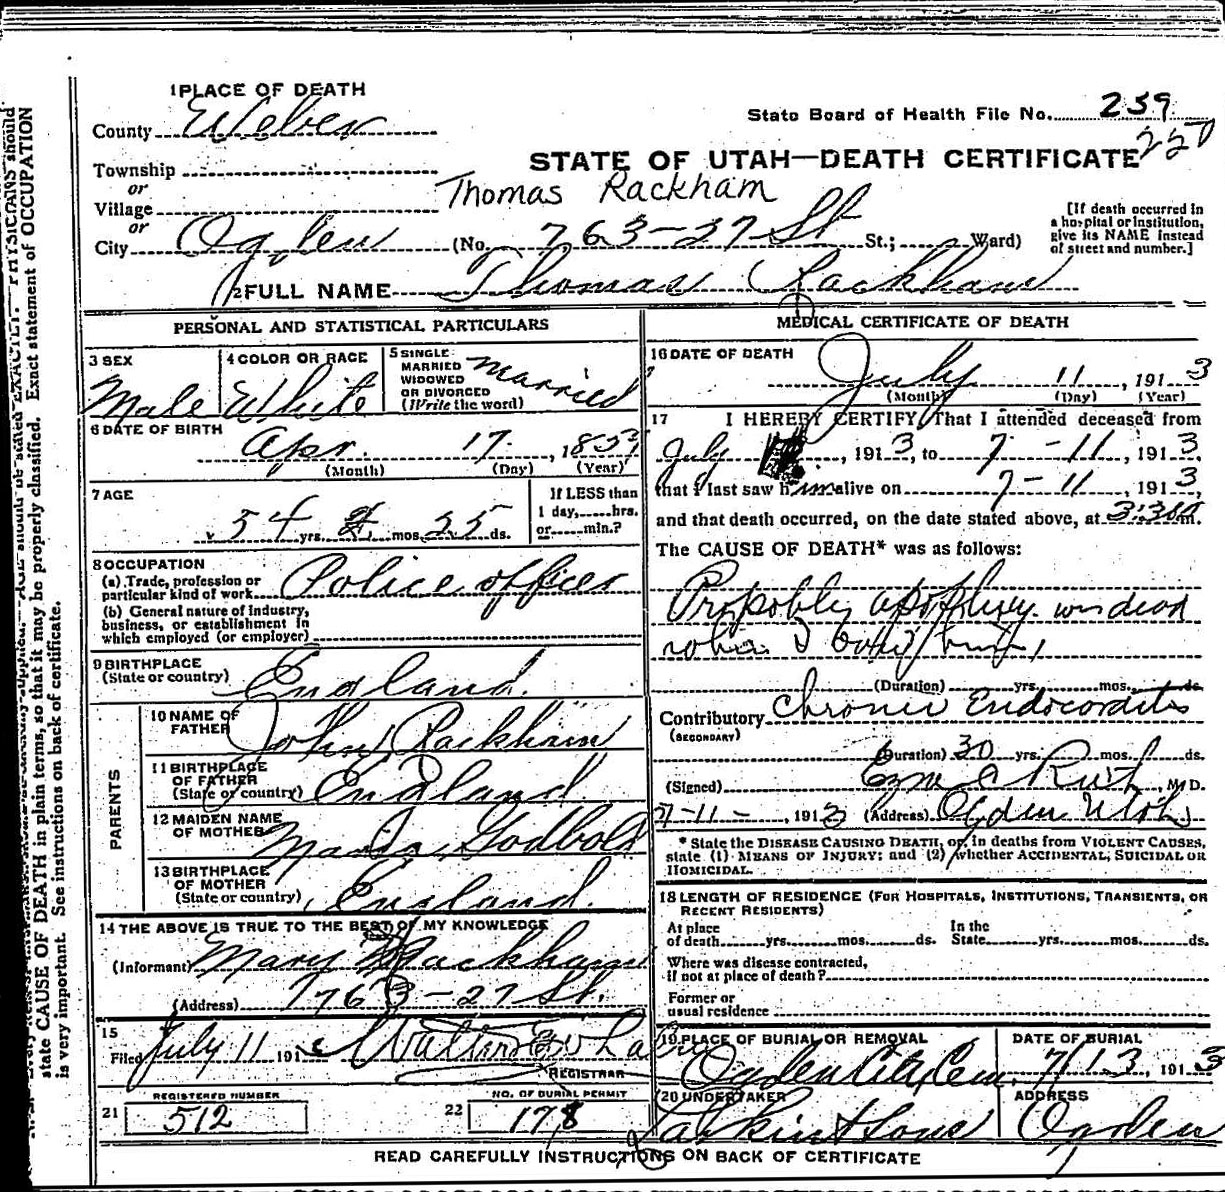 1 PLACE OF DEATH
County Weber
State Board of Health File No. 259
220
Township
STATE OF UTAH—DEATH CERTIFICATE
or
Village
Thomas Rackham
or
City Ogden (No. 763-27 St St.; Ward)
[If death occurred in a hospital or institution, give its NAME instead of street and number.]
2 FULL NAME Thomas Rackham
PERSONAL AND STATISTICAL PARTICULARS
3 SEX
Male
4 COLOR OR RACE
White
5 SINGLE
MARRIED
WIDOWED
OR DIVORCED
(Write the word)
Married
6 DATE OF BIRTH
Apr. 17, 1853
(Month) (Day) (Year)
7 AGE
54 yrs. 2 mos. 25 ds.
If LESS than
1 day, hrs.
or min.?
8 OCCUPATION
(a) Trade, profession or
particular kind of work Police officer
(b) General nature of industry,
business, or establishment in
which employed (or employer)
9 BIRTHPLACE
(State or country) England.
PARENTS
10 NAME OF
FATHER John Rackham
11 BIRTHPLACE
OF FATHER
(State or country) England
12 MAIDEN NAME
OF MOTHER Godbold
13 BIRTHPLACE
OF MOTHER
(State or country) England.
14 THE ABOVE IS TRUE TO THE BEST OF MY KNOWLEDGE
(Informant) Mary Rackham
(Address) 763-27 St.
15
Filed July 11 191
REGISTRAR
REGISTERED NUMBER
21 512
NO. OF BURIAL PERMIT
22 178
MEDICAL CERTIFICATE OF DEATH
16 DATE OF DEATH
July 11, 1913
(Month) (Day) (Year)
17 I HEREBY CERTIFY, That I attended deceased from
July , 1913, to 7-11, 1913,
that I last saw him alive on 7-11, 1913,
and that death occurred, on the date stated above, at 3:30 m.
The CAUSE OF DEATH* was as follows:
Propobly apoplexy. was dead
when I
(Duration) yrs. mos. ds.
Contributory Chronic Endocorditis
(SECONDARY)
(Duration) 30 yrs. mos. ds.
(Signed) Rich, M.D.
7-11-, 1913 (Address) Ogden Utah
* State the DISEASE CAUSING DEATH, or, in deaths from VIOLENT CAUSES,
state (1) MEANS OF INJURY; and (2) whether ACCIDENTAL, SUICIDAL OR
HOMICIDAL.
18 LENGTH OF RESIDENCE (FOR HOSPITALS, INSTITUTIONS, TRANSIENTS, OR
RECENT RESIDENTS)
At place
of death yrs. mos. ds.
In the
State yrs. mos. ds.
Where was disease contracted,
if not at place of death?
Former or
usual residence
19 PLACE OF BURIAL OR REMOVAL
Ogden City Cem.
DATE OF BURIAL
7/13, 1913
20 UNDERTAKER
Larkin & Sons
ADDRESS
Ogden
READ CAREFULLY INSTRUCTIONS ON BACK OF CERTIFICATE
state CAUSE OF DEATH in plain terms, so that it may be properly classified. Exact statement of OCCUPATION
is very important. See instructions on back of certificate.